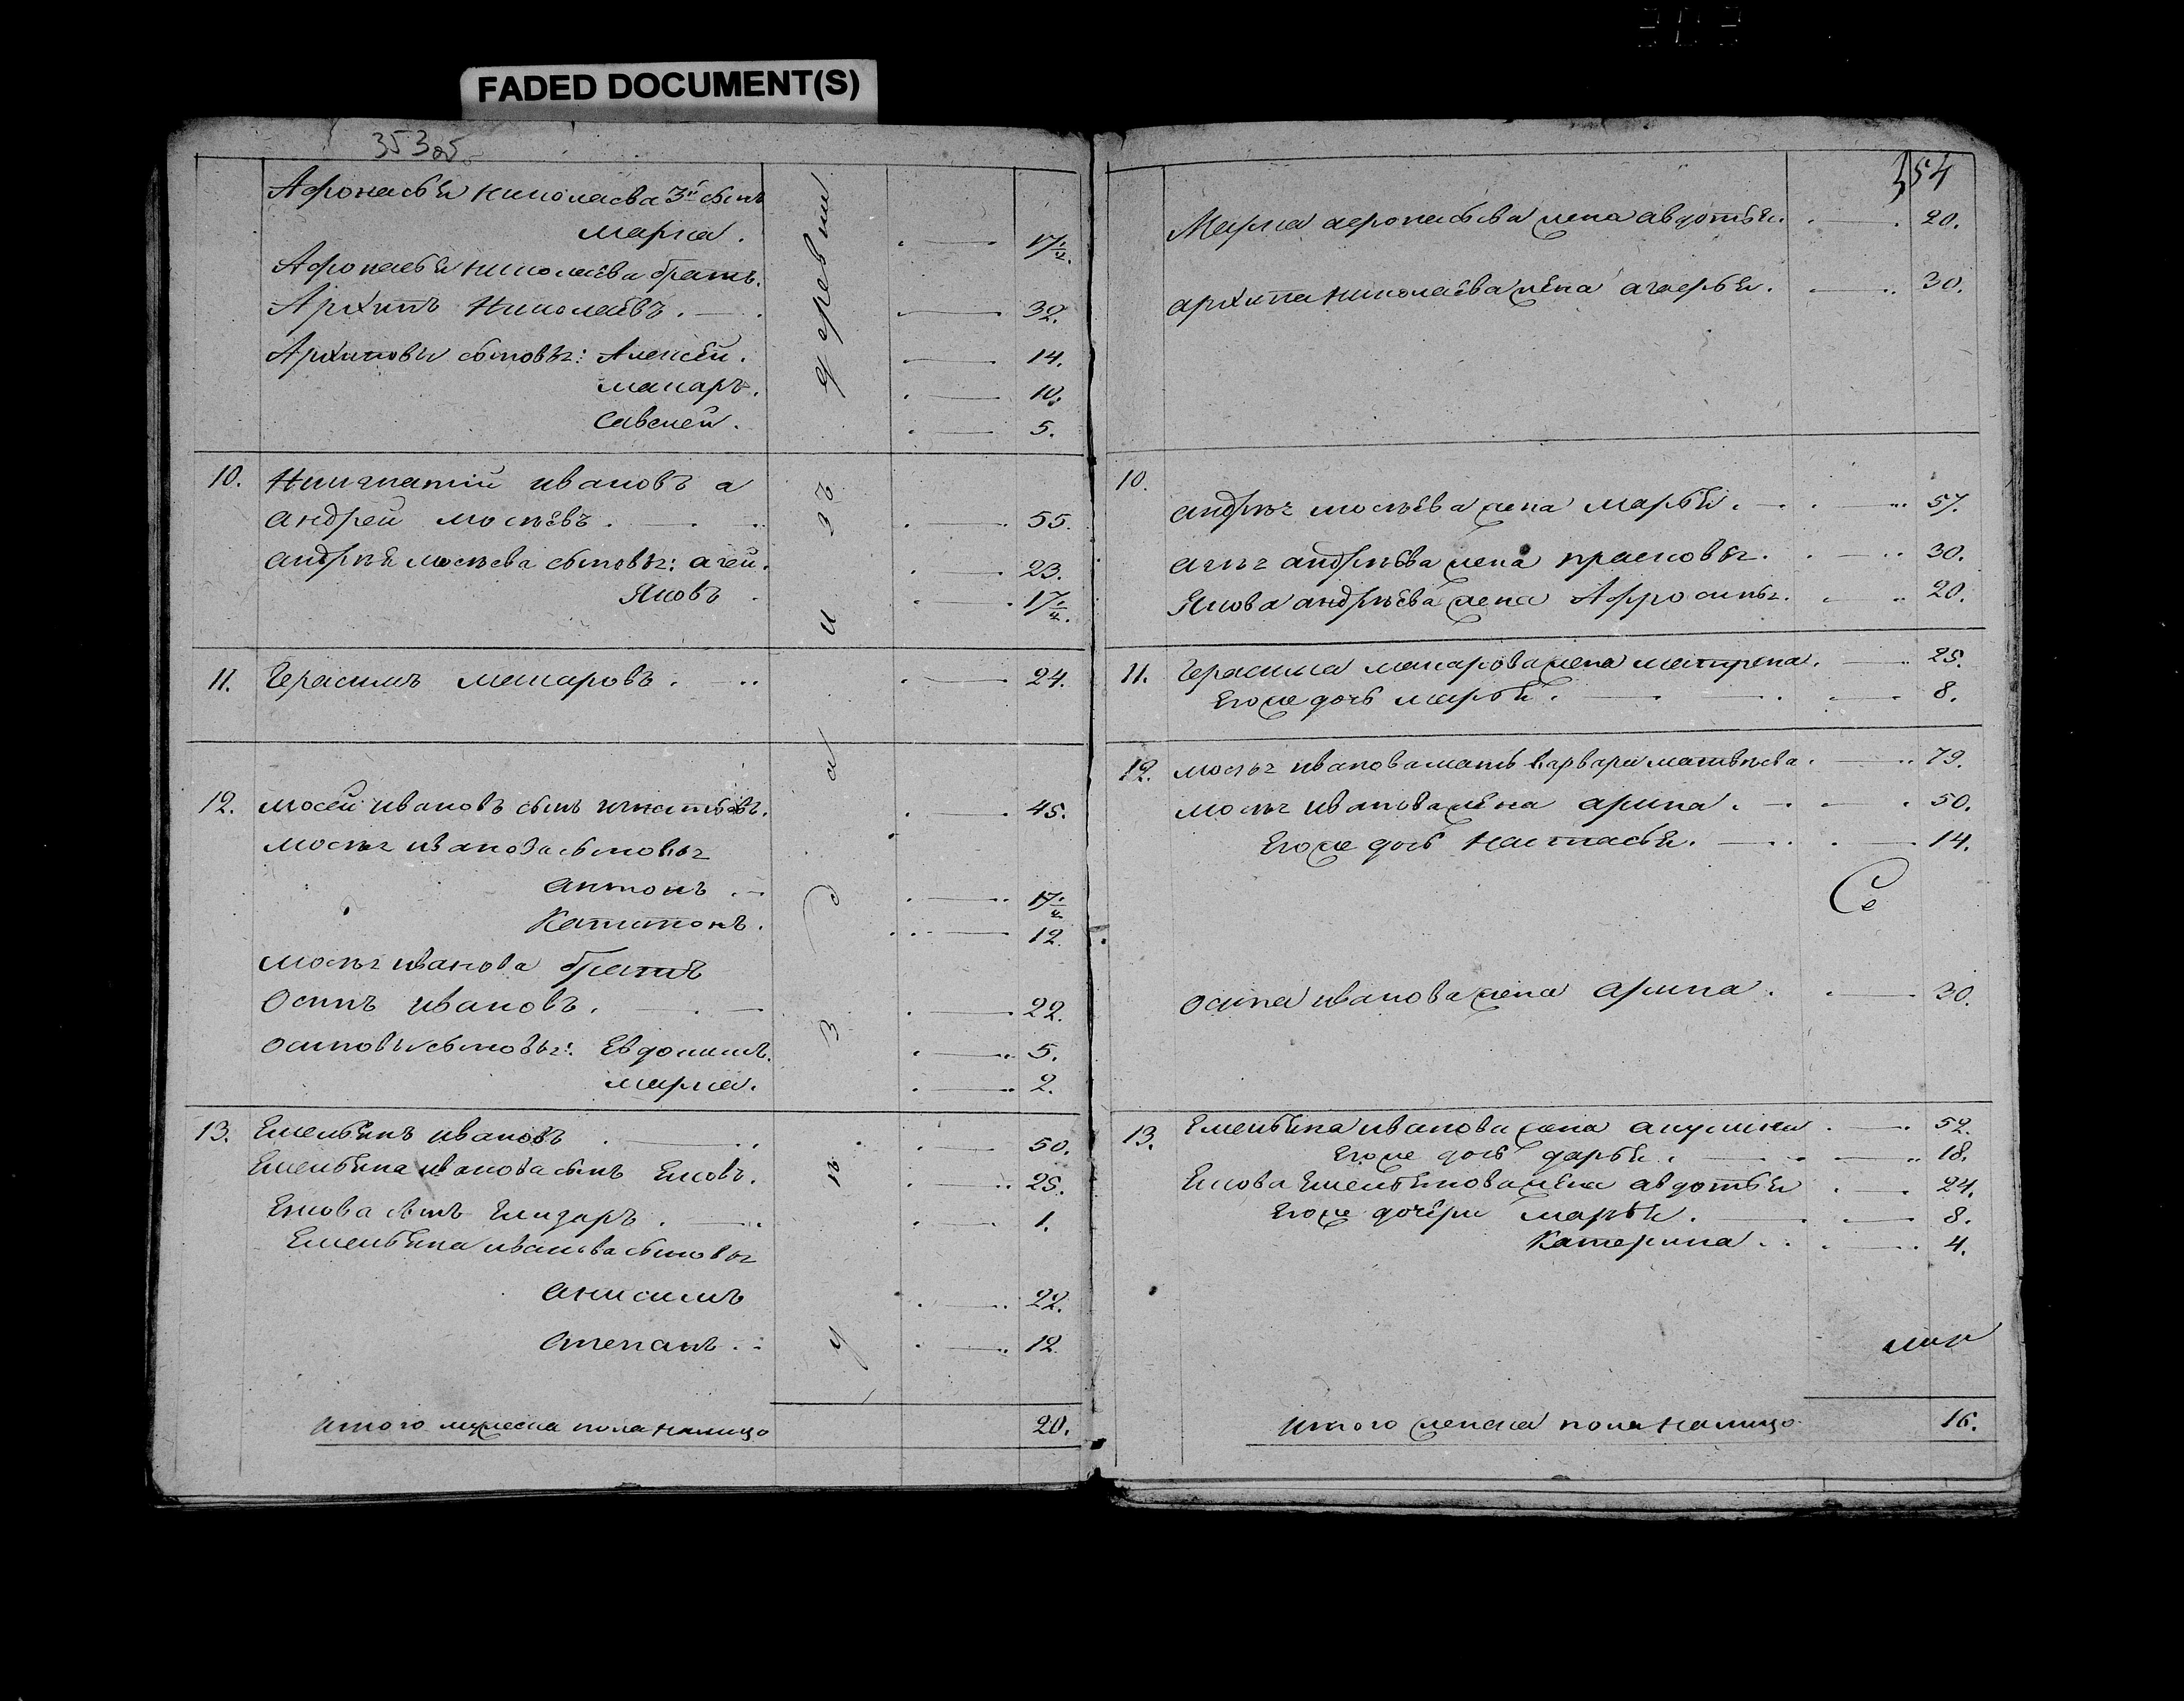 FADED DOCUMENT(S)
353 об.
Афонасья николаева 3й сынъ
марка. 17½.
Афонасья николаева братъ.
Архипъ Николаевъ. 32.
Архиповы сыновья: Алексей. 14.
макаръ. 10.
Савелей. 5.
10. иванов а
андрей мосеевъ. 55.
андрея мосеева сыновья: агей. 23.
Яковъ 17½.
11. Герасимъ макаровъ. 24.
12. мосей ивановъ сынъ 45.
мосея иванова сыновья
антонъ 17½
Капитонъ. 12.
мосея иванова братъ
Осипъ ивановъ. 22.
осиповы сыновья: Евдокимъ. 5.
марка. 2.
13. Емельянъ ивановъ 50.
Емельяна иванова сынъ Ековъ. 25.
Екова сынъ Елизаръ. 1.
Емельяна иванова сыновья
анисимъ 22.
степанъ 12.
итого мужеска пола налицо 20.
354
Марка афонасьева жена авдотья. 20.
архипа николаева жена агафья. 30.
10.
андрея мосеева жена марья. 57.
агея андреева жена прасковья. 30.
Якова андреева жена Афросинья. 20.
11. Герасима макарова жена матрена. 25.
Его же дочь марья. 8.
12. мосея иванова мать варвара матвеева. 79.
мосея иванова жена арина. 50.
Его же дочь настасья. 14.
Се
осипа иванова жена арина. 30.
13. Емельяна иванова жена акулина 52.
Его же дочь дарья. 18.
Екова Емельянова жена авдотья 24.
Его же дочери марья. 8.
Катерина. 4.
итого женска пола налицо 16.